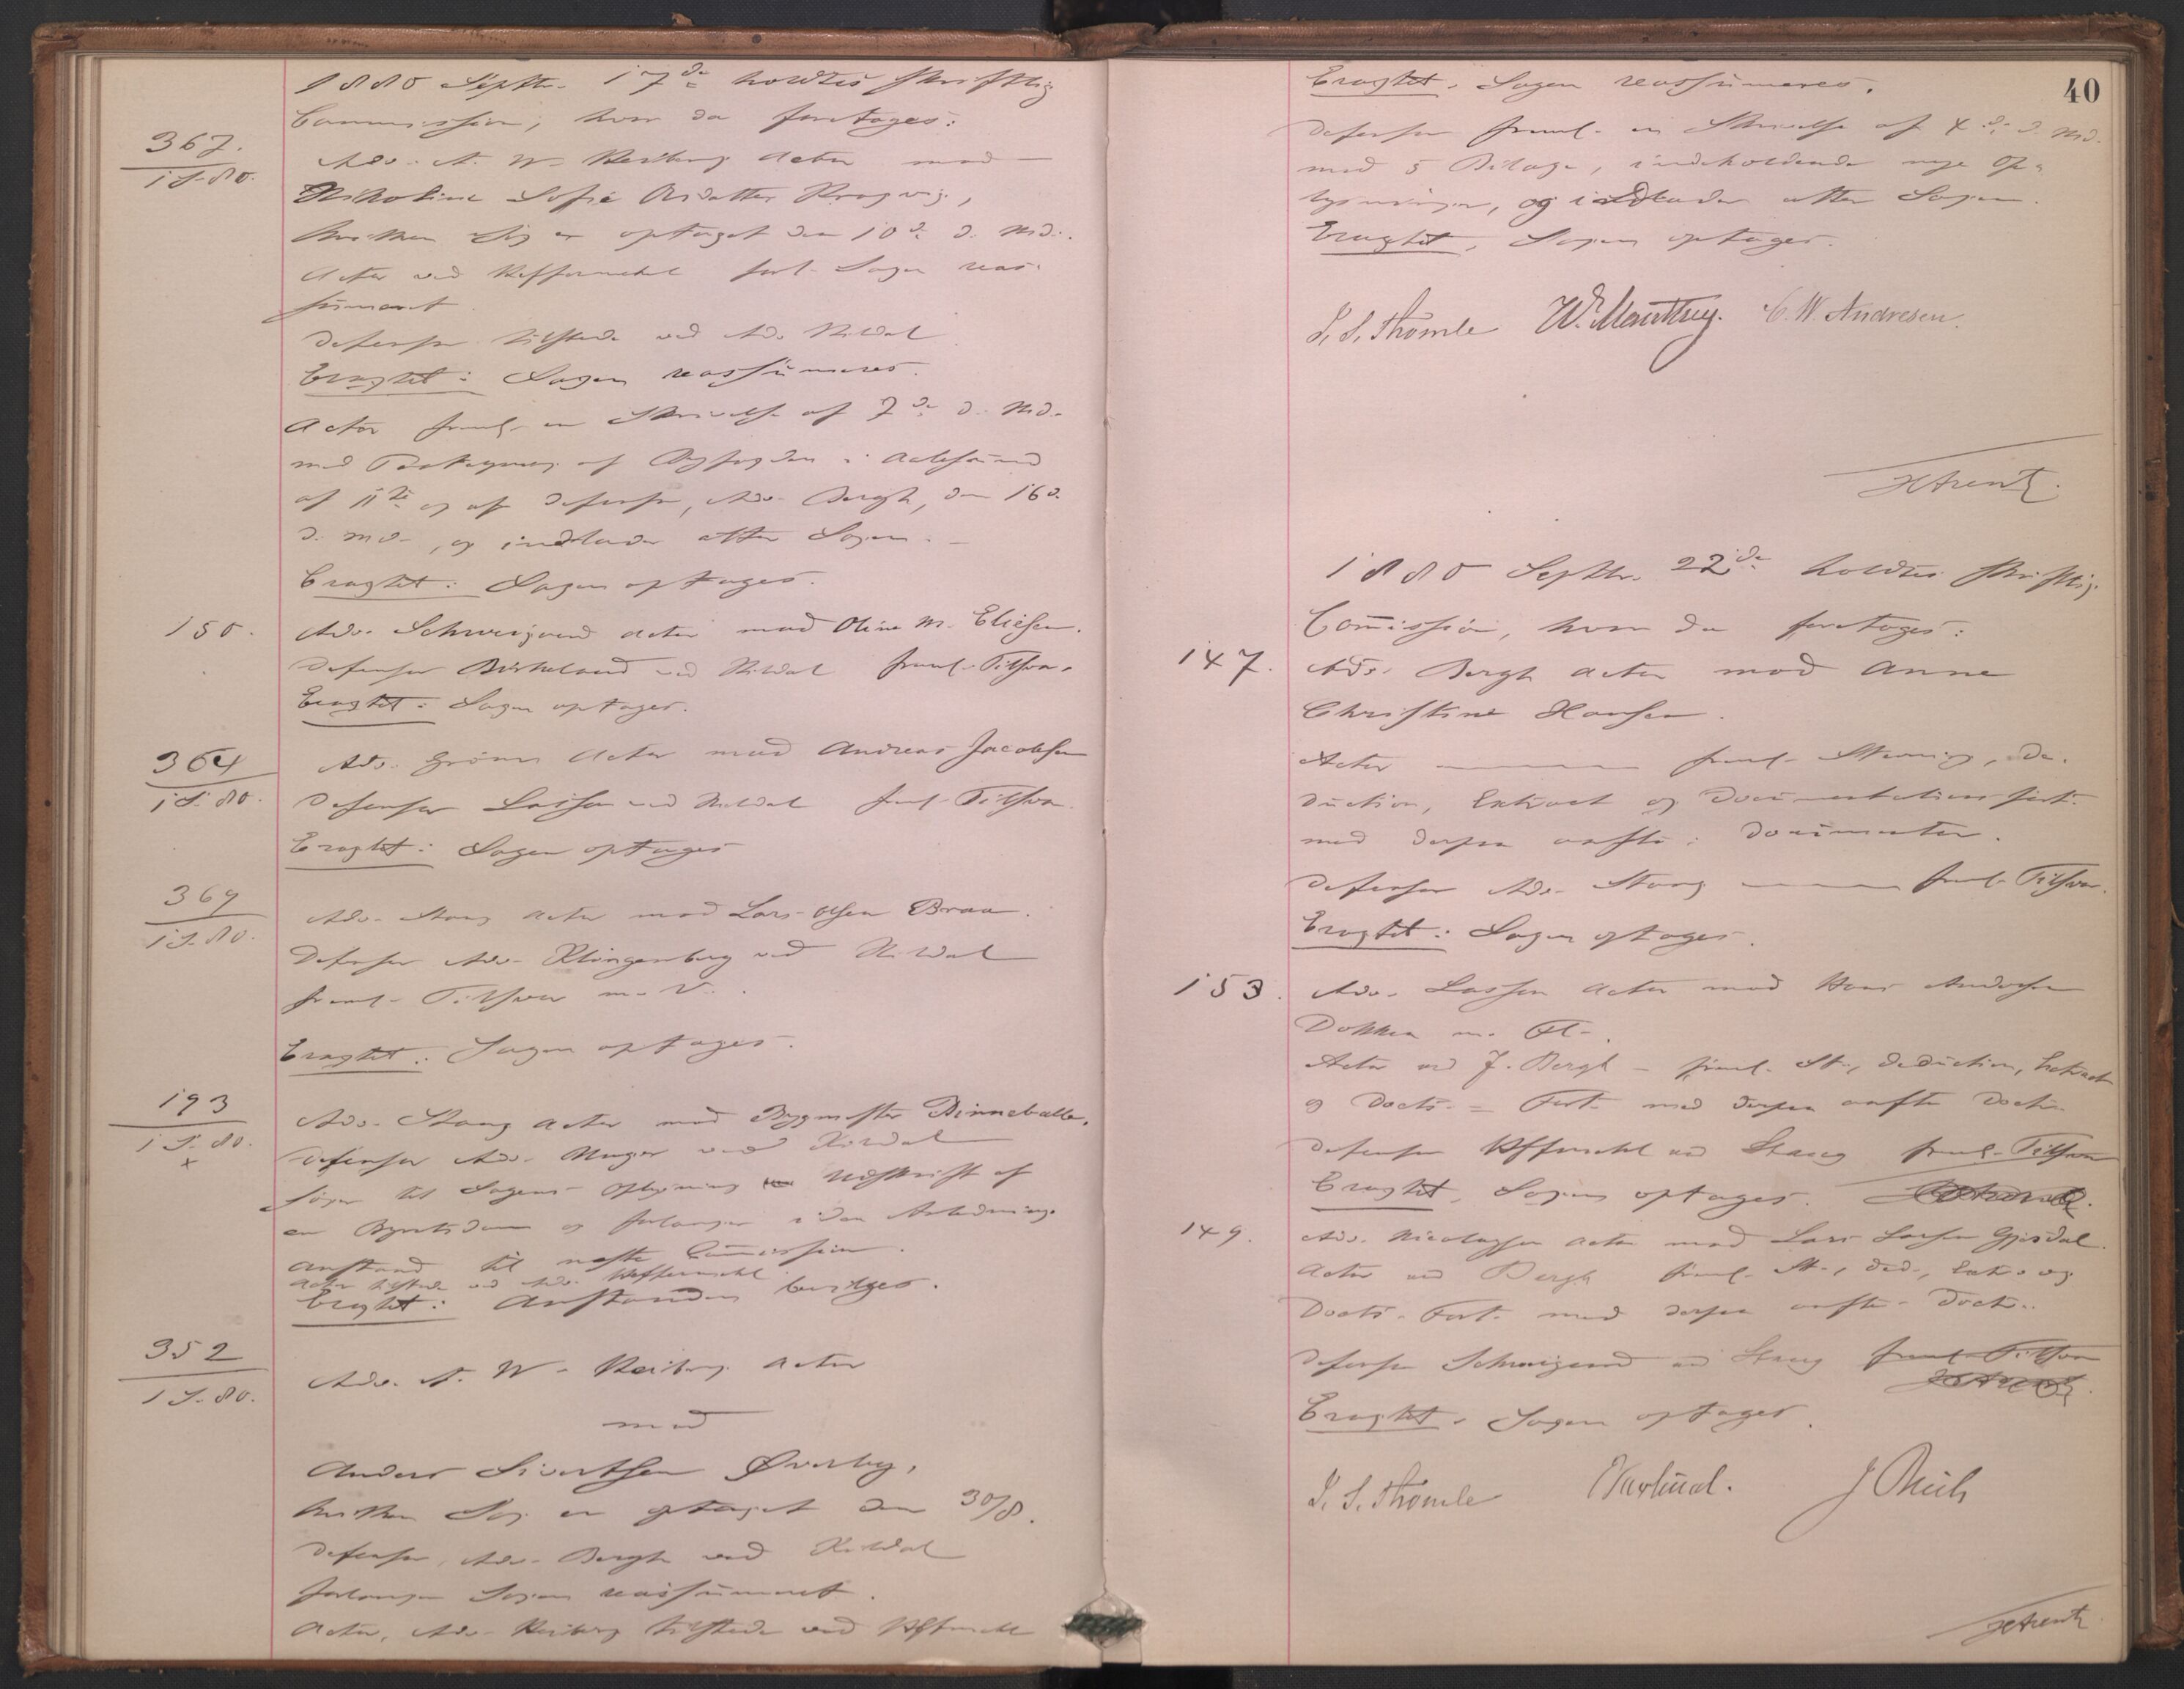 1880 Septbr. 17de holdtes skriftlig
Commission, hvor da foretoges:
367.
1 S. 80.
Adv. A. W. Heiberg Actor mod
Nikoline Sofie Arsdatter Kragvig,
hvilken Sag er optaget den 10de d. Md.
Actor ved Heffermehl forl. Sagen reas-
sumeret.
Defensor tilstede ved Adv. Kildal
Eragtet: Sagen reassumeres.
Actor freml. en Skrivelse af 7de d. Md.
med Paategning af Byfogden i Aalesund
af 11te og af Defensor, Adv. Bergh, den 16de
d. Md., og indlader atter Sagen.
Eragtet: Sagen optages.
150.
Adv. Schweigaard Actor mod Oline M. Eliesen.
Defensor Birkeland ved Kildal freml. Tilsvar.
Eragtet: Sagen optages.
364
1 S. 80.
Adv. Grönn Actor mod Andreas Jacobsen
Defensor Lassen ved Kildal freml. Tilsvar.
Eragtet: Sagen optages
369
1 S. 80.
Adv. Stang Actor mod Lars Olsen Braa.
Defensor Adv. Klingenberg ved Kildal
freml. Tilsvar m. V.
Eragtet: Sagen optages.
193
1 S. 80.
x
Adv. Stang Actor mod Bygmester Binneballe.
Defensor Adv. Unger ved Kildal
søger til Sagens Oplysning Udskrift af
en Byretsdom og forlanger i den Anledning
Anstand til næste Commission.
Actor tilstede ved Adv. Heffermehl
Eragtet: Anstanden bevilges.
352
1 S. 80.
Adv. A. W. Heiberg Actor
mod
Anders Sivertsen Øverby,
hvilken Sag er optaget den 30/8.
Defensor, Adv. Bergh ved Kildal
forlanger Sagen reassumeret.
Actor, Adv. Heiberg tilstede ved Heffermehl
40
Eragtet. Sagen reassumeres.
Defensor freml. en Skrivelse af 4de d. Md.
med 5 Bilage, indeholdende nye Op-
lysninger, og indlader atter Sagen.
Eragtet, Sagen optages.
S. S. Thomle W. Manthey. C. W. Andresen.
Arentz.
1880 Septbr. 22de holdtes skriftlig
Com̅ission, hvor da foretoges:
147.
Adv. Bergh Actor mod Anne
Christine Hansen.
Actor freml. Stevning, De-
duction, Extract og Documentationsfort.
med derpaa anførte Documenter.
Defensor Adv. Stang freml. Tilsvar.
Eragtet: Sagen optages.
153.
Adv. Lassen Actor mod Hans Andersen
Dokken m. Fl.
Actor ved J. Bergh freml. St., Deduction, Extract
og Docts. = Fort. med derpaa anførte Docts.
Defensor Heffermehl ved Stang freml. Tilsvar
Eragtet, Sagen optages.
149.
Adv. Nicolaysen Actor mod Lars Larsen Gjesdal.
Actor ved Bergh freml. St., Ded., Extr. og
Docts. Fort. med derpaa anførte Docts.
Defensor Schweigaard ved Stang freml. Tilsvar
Eragtet. Sagen optages.
S. S. Thomle J. Reich
Arentz